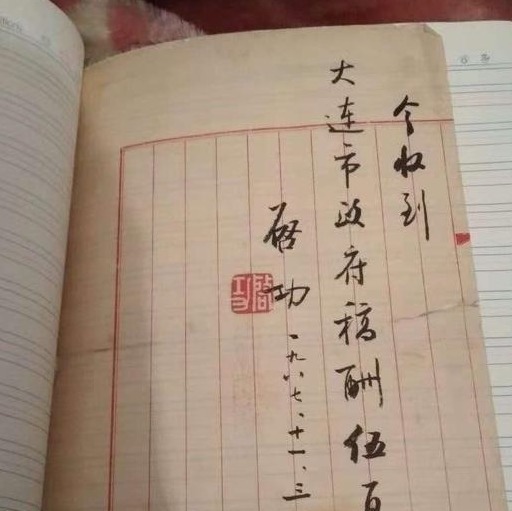 今收到
大连市政府稿酬伍百
启功
一九八七、十一、三